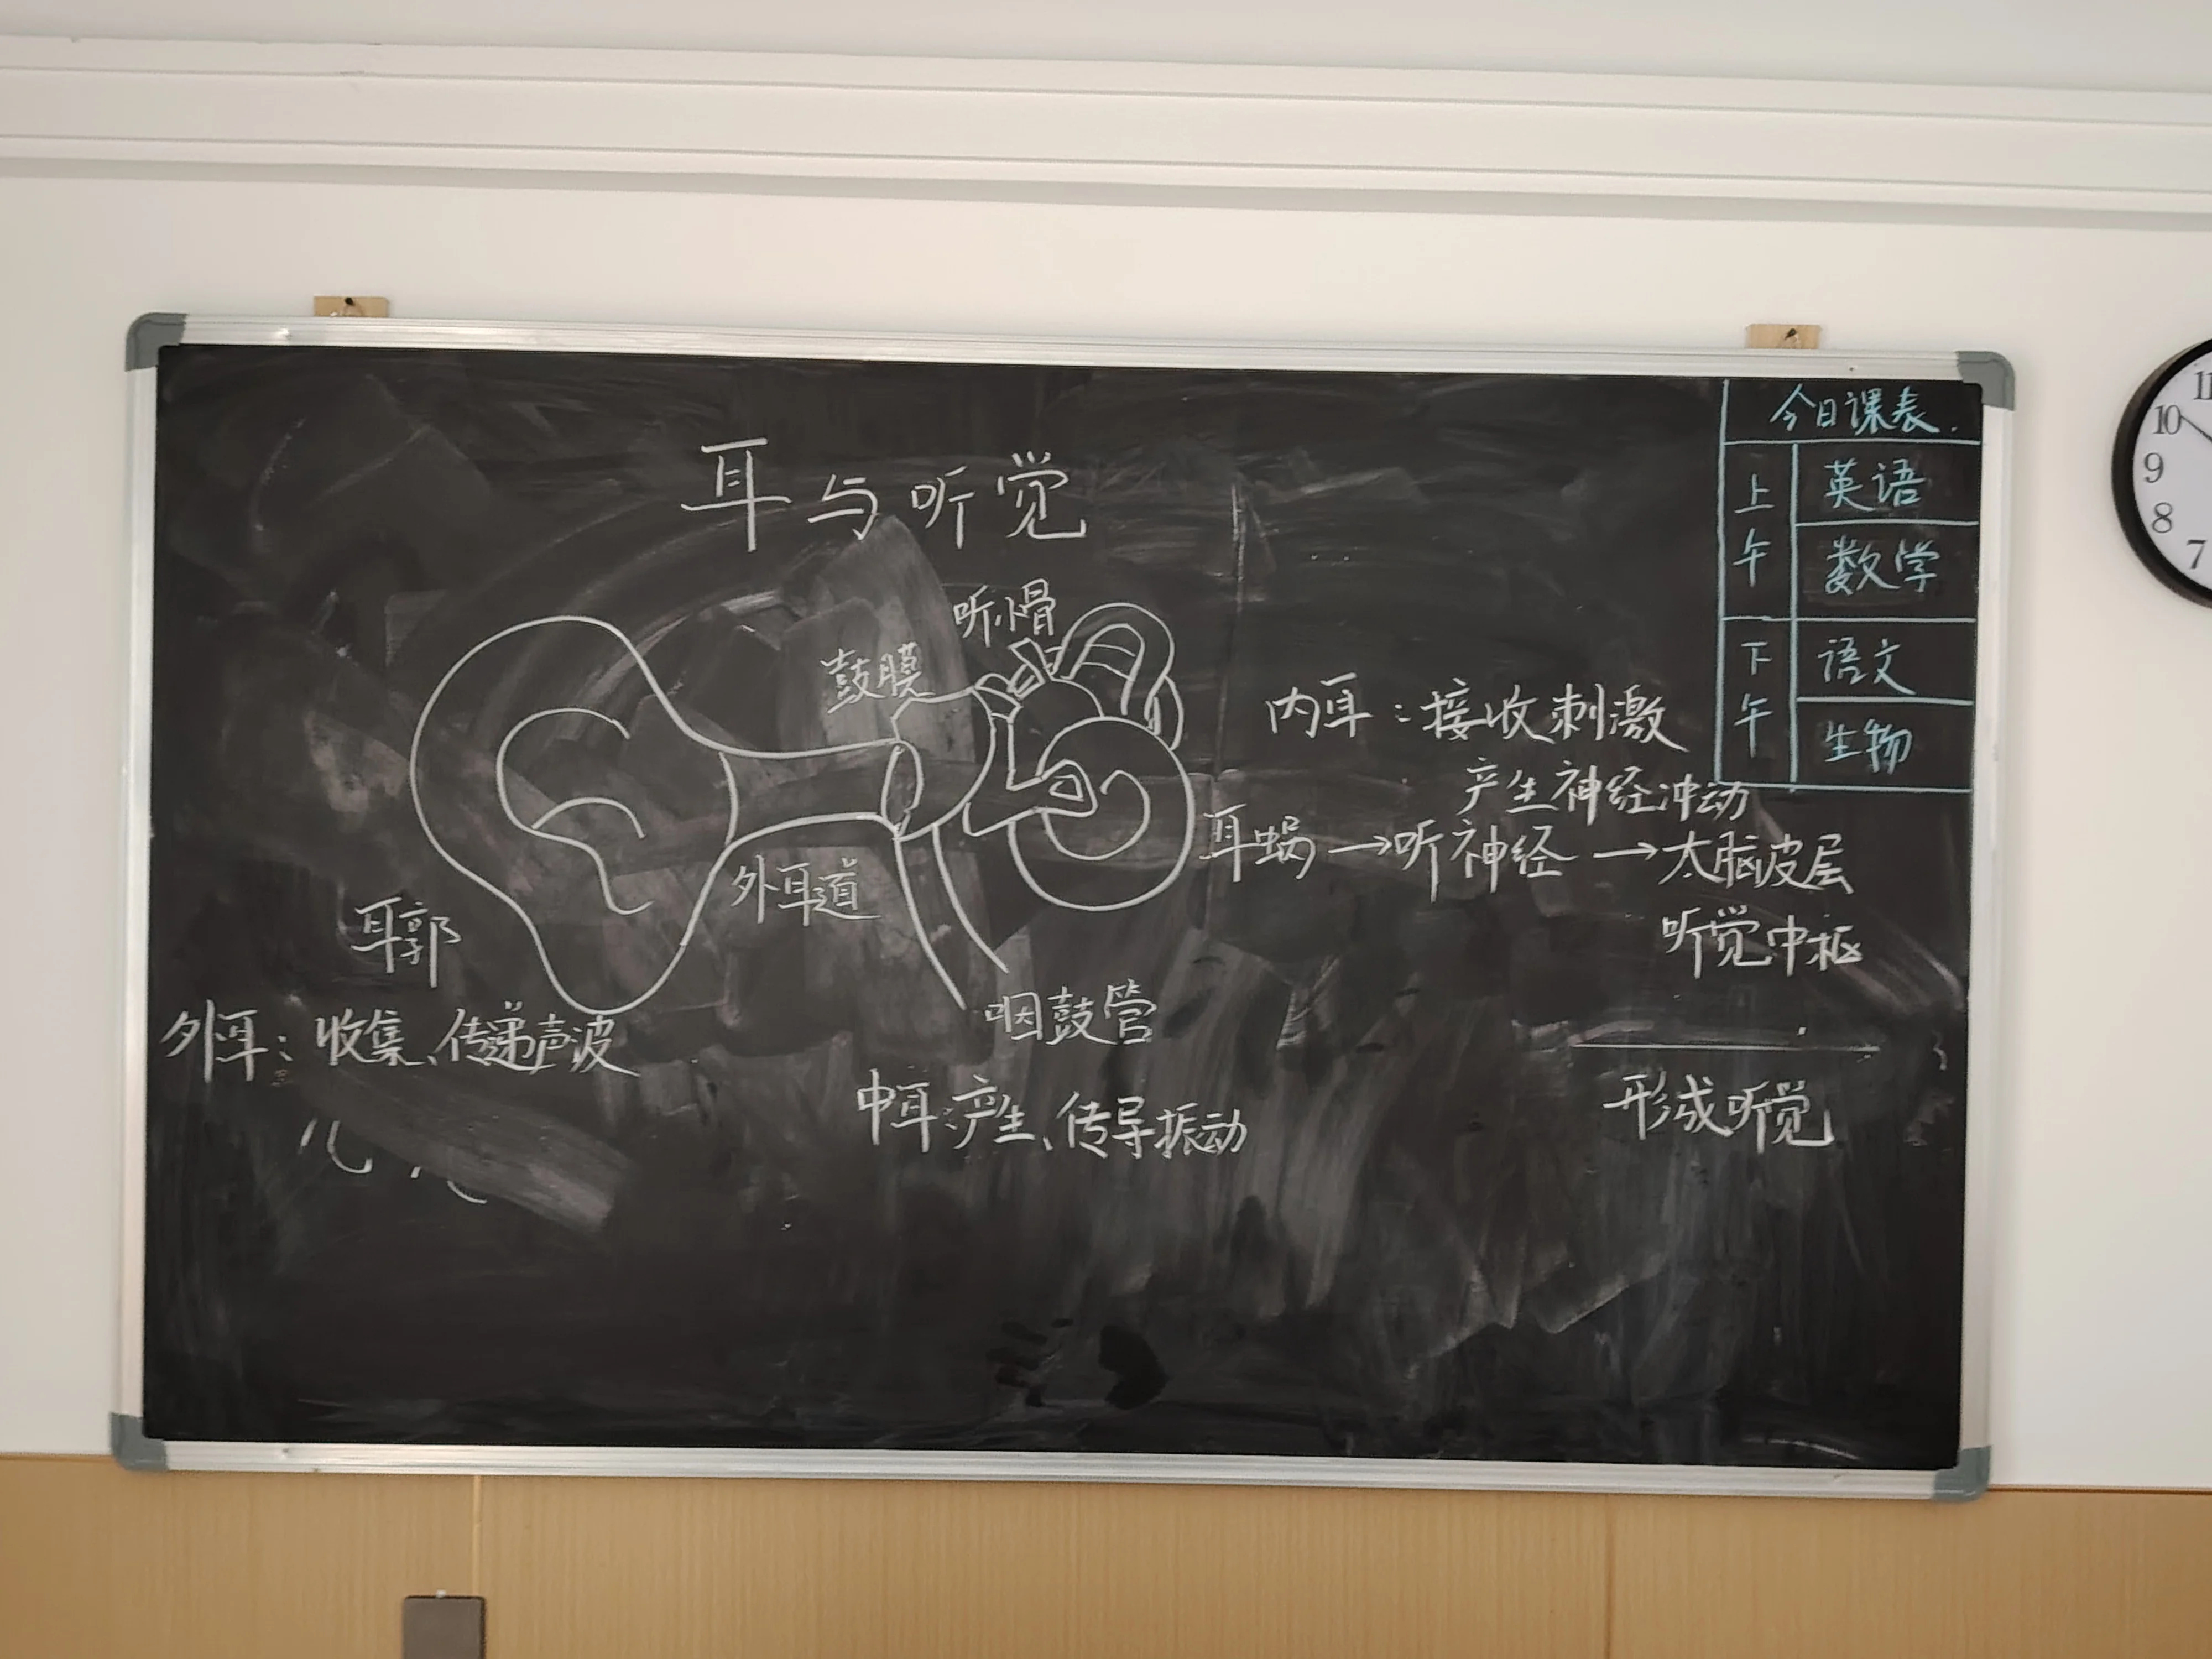 耳与听觉
今日课表
上午
英语
数学
下午
语文
生物
听小骨
鼓膜
外耳道
耳郭
咽鼓管
外耳：收集、传递声波
中耳：产生、传导振动
内耳：接收刺激
产生神经冲动
耳蜗→听神经→大脑皮层
听觉中枢
形成听觉
11
10
9
8
7